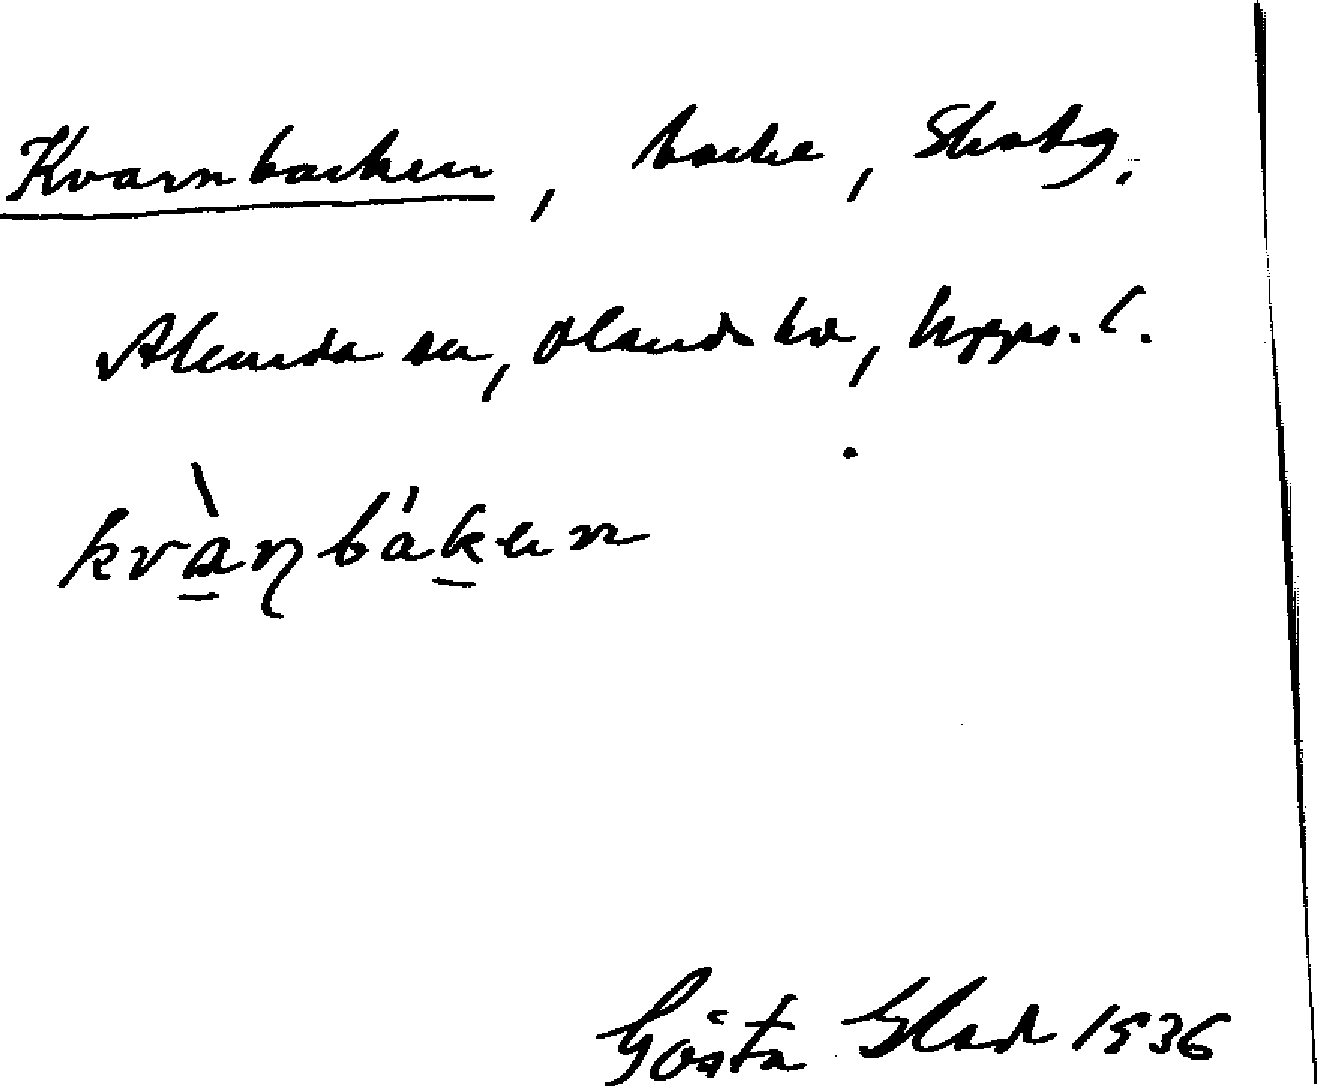 Kvarnbacken, backe, Skoby.
Alunda sn, Olands hd, Upps. l.
kvàɳbák̲en
Gösta Glad 1936